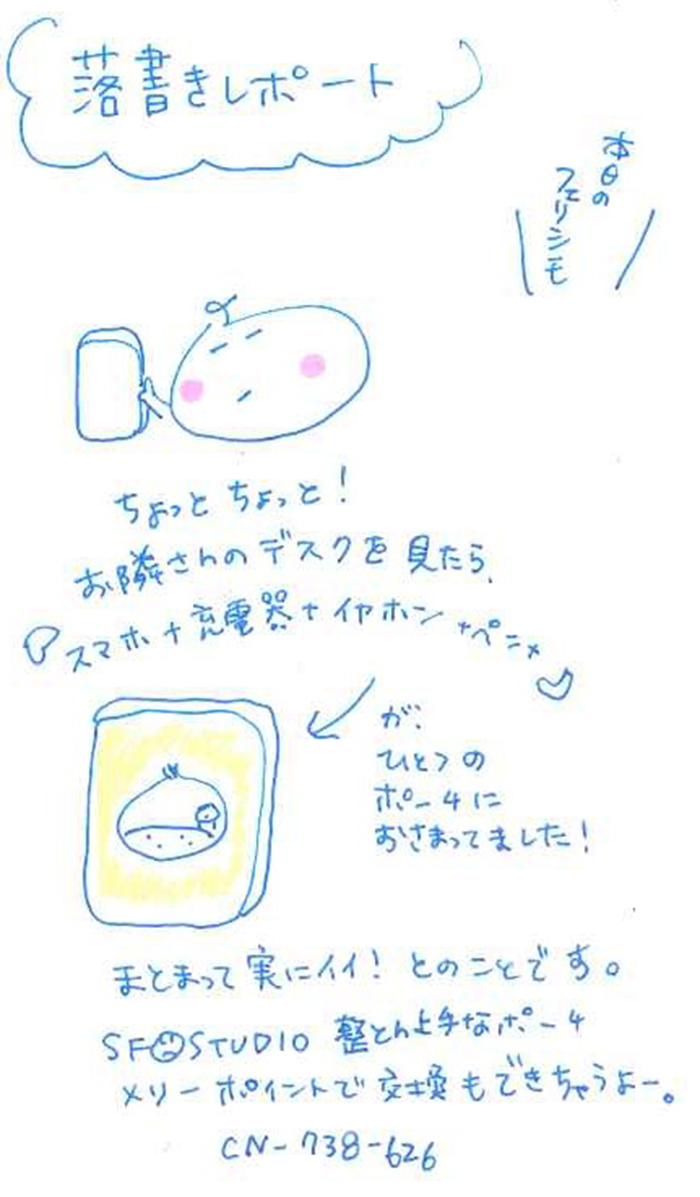 落書きレポート
本日の
フェリシモ
ちょっとちょっと!
お隣さんのデスクを見たら、
スマホ+充電器+イヤホン+ペン+
が、
ひとつの
ポーチに
おさまってました!
まとまって実にイイ! とのことです。
SF☹STUDIO 整とん上手なポーチ
メリーポイントで交換もできちゃうよー。
CN-738-626